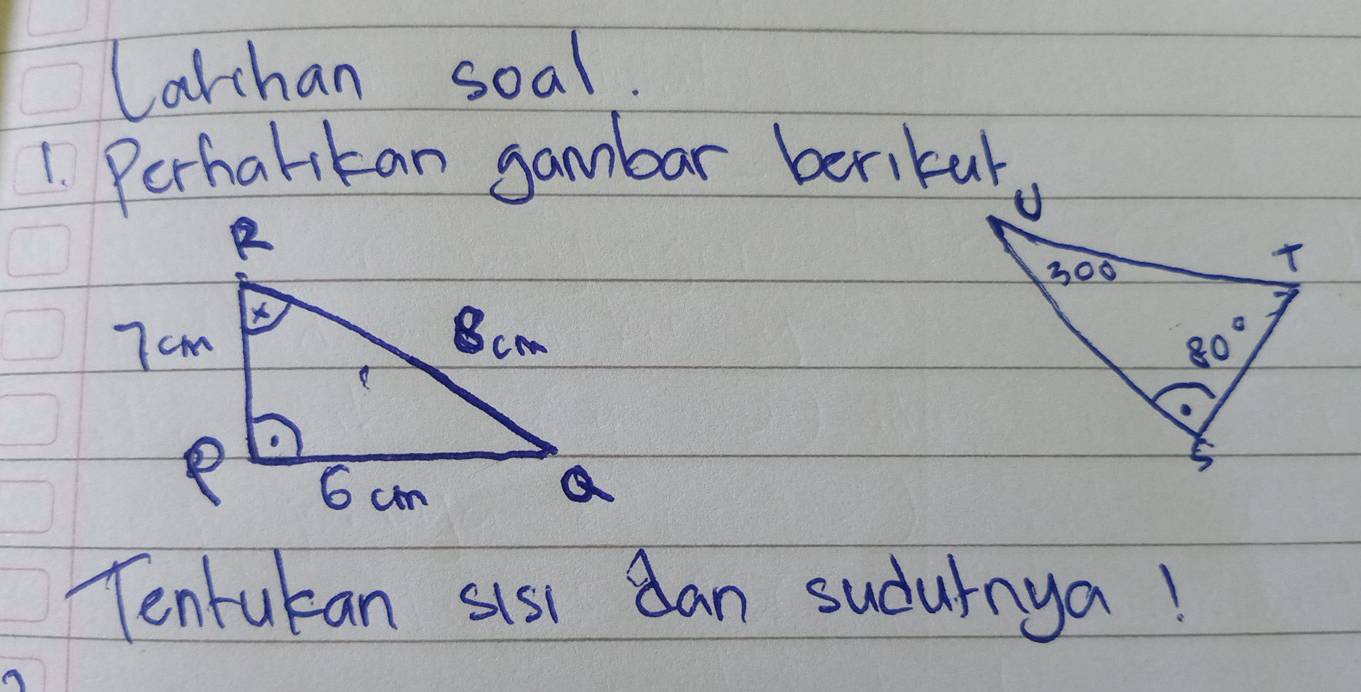 Latihan soal.
1. Perhatikan gambar berikut
U
R
T
300
7 cm
8 cm
x
80°
P
6 cm
Q
S
Tentukan sisi dan sudutnya !